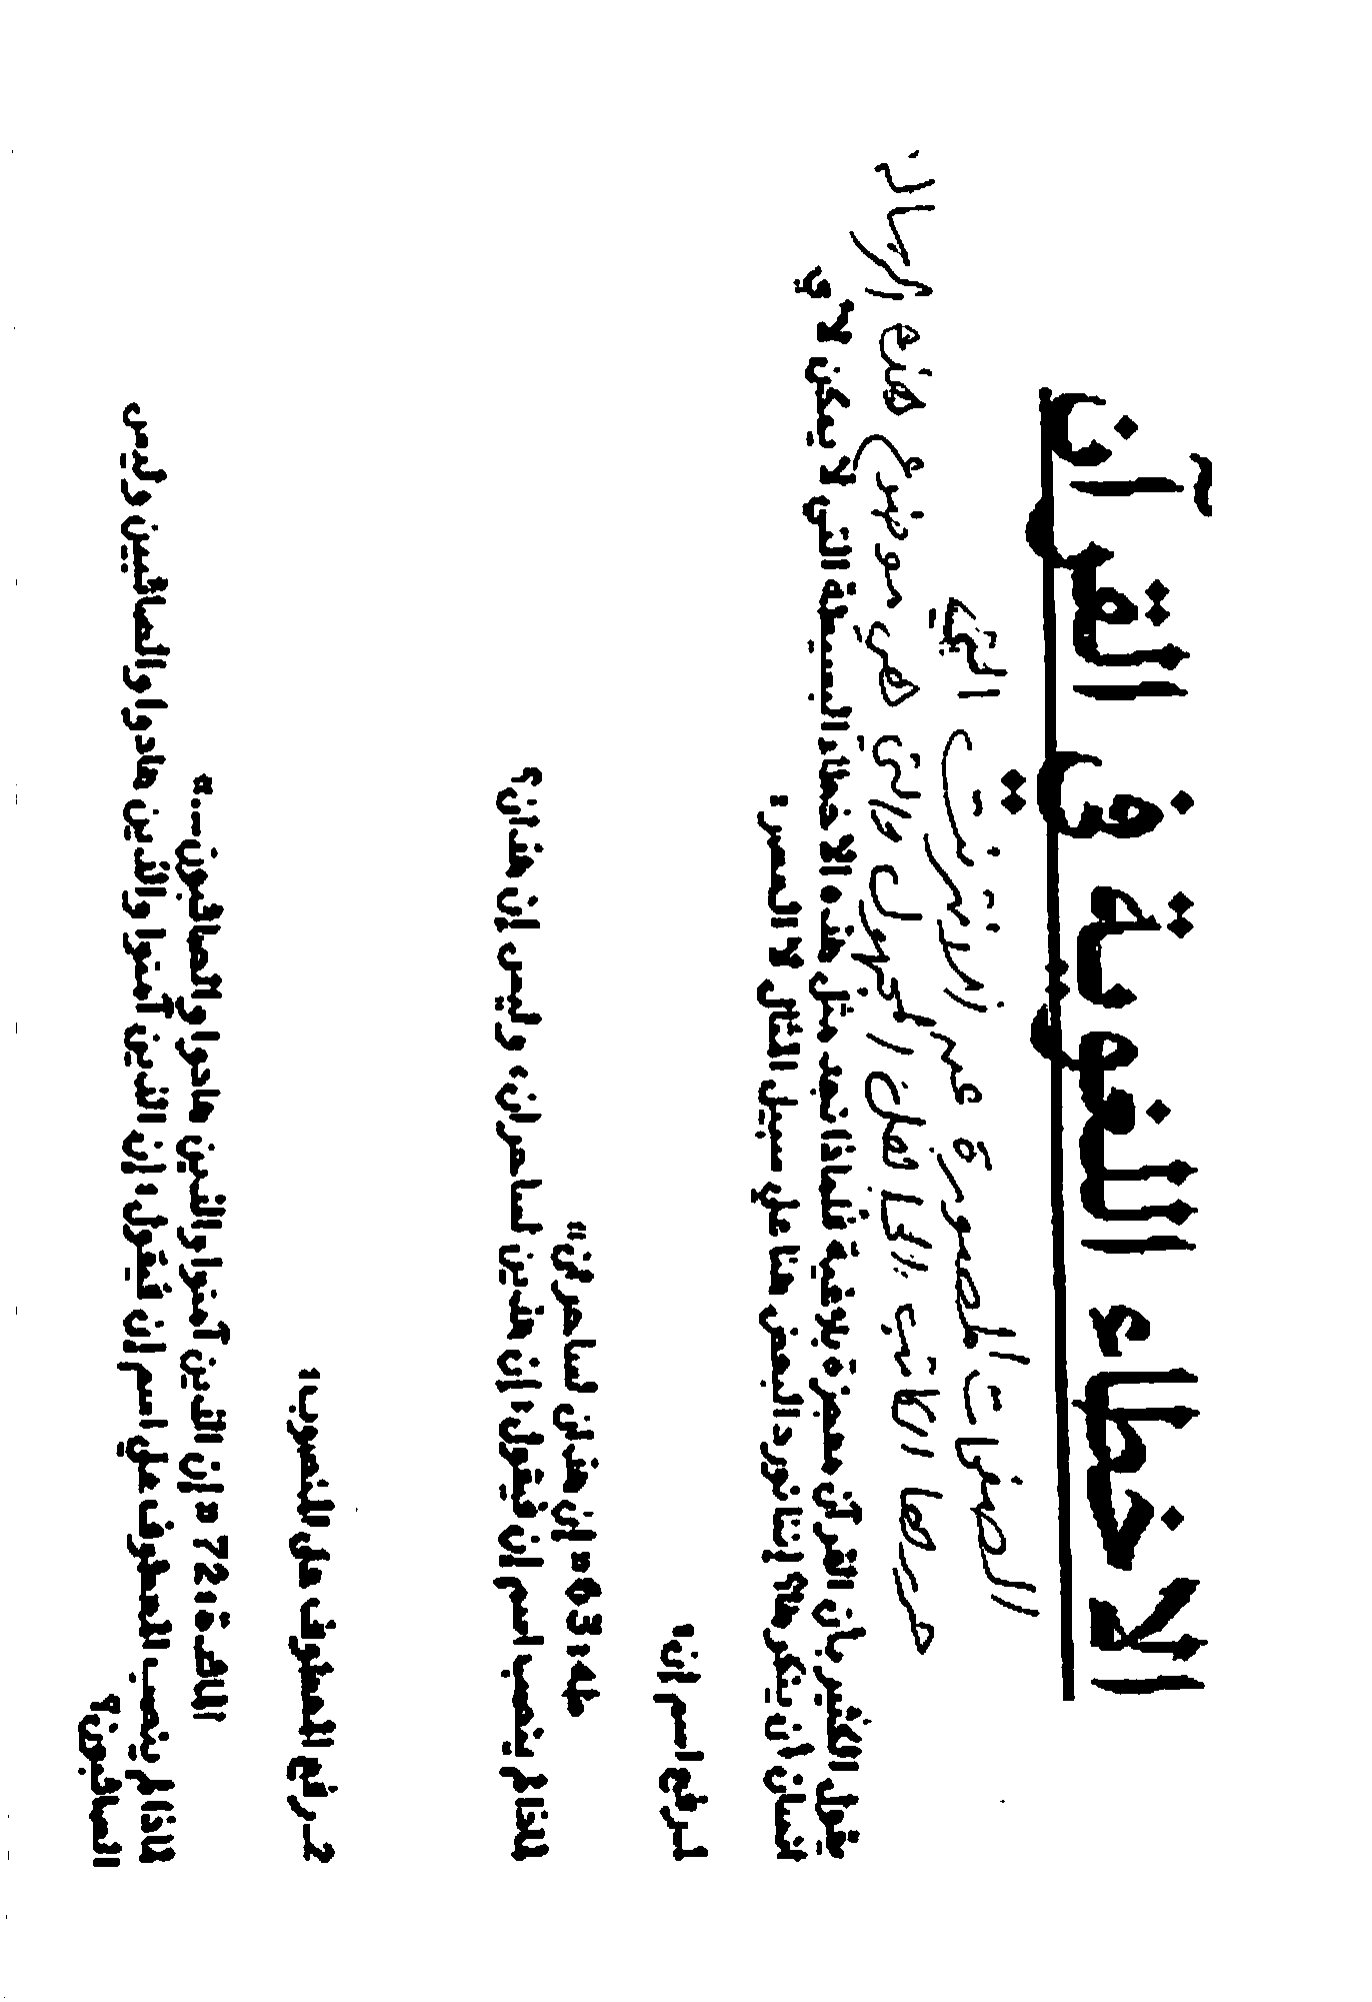 الاخطاء اللغوية في القرآن
الصفحات المصورة عبر الانترنت التي
حررها الكاتب الجاهل المجهول والتي هي موضوع هذه الرسالة
يقول الكثير بان القرآن معجزة بلاغية فلماذا نجد مثل هذه الاخطاء البسيطة التي لا يمكن لأي
انسان أن ينكرها؟ إننا نورد البعض هنا علي سبيل المثال لا الحصر:
1ـ رفع اسم إن:
طه: 63 « إن هذان لساحران»
لماذا لم ينصب اسم إن فيقول: إن هذين لساحران، وليس إن هذان؟
2ـ رفع المعطوف على المنصوب:
المائدة: 72 « إن الذين آمنوا والذين هادوا والصائبون...»
لماذا لم ينصب المعطوف علي اسم إن فيقول: إن الذين آمنوا والذين هادوا والصائبين وليس
الصائبون؟